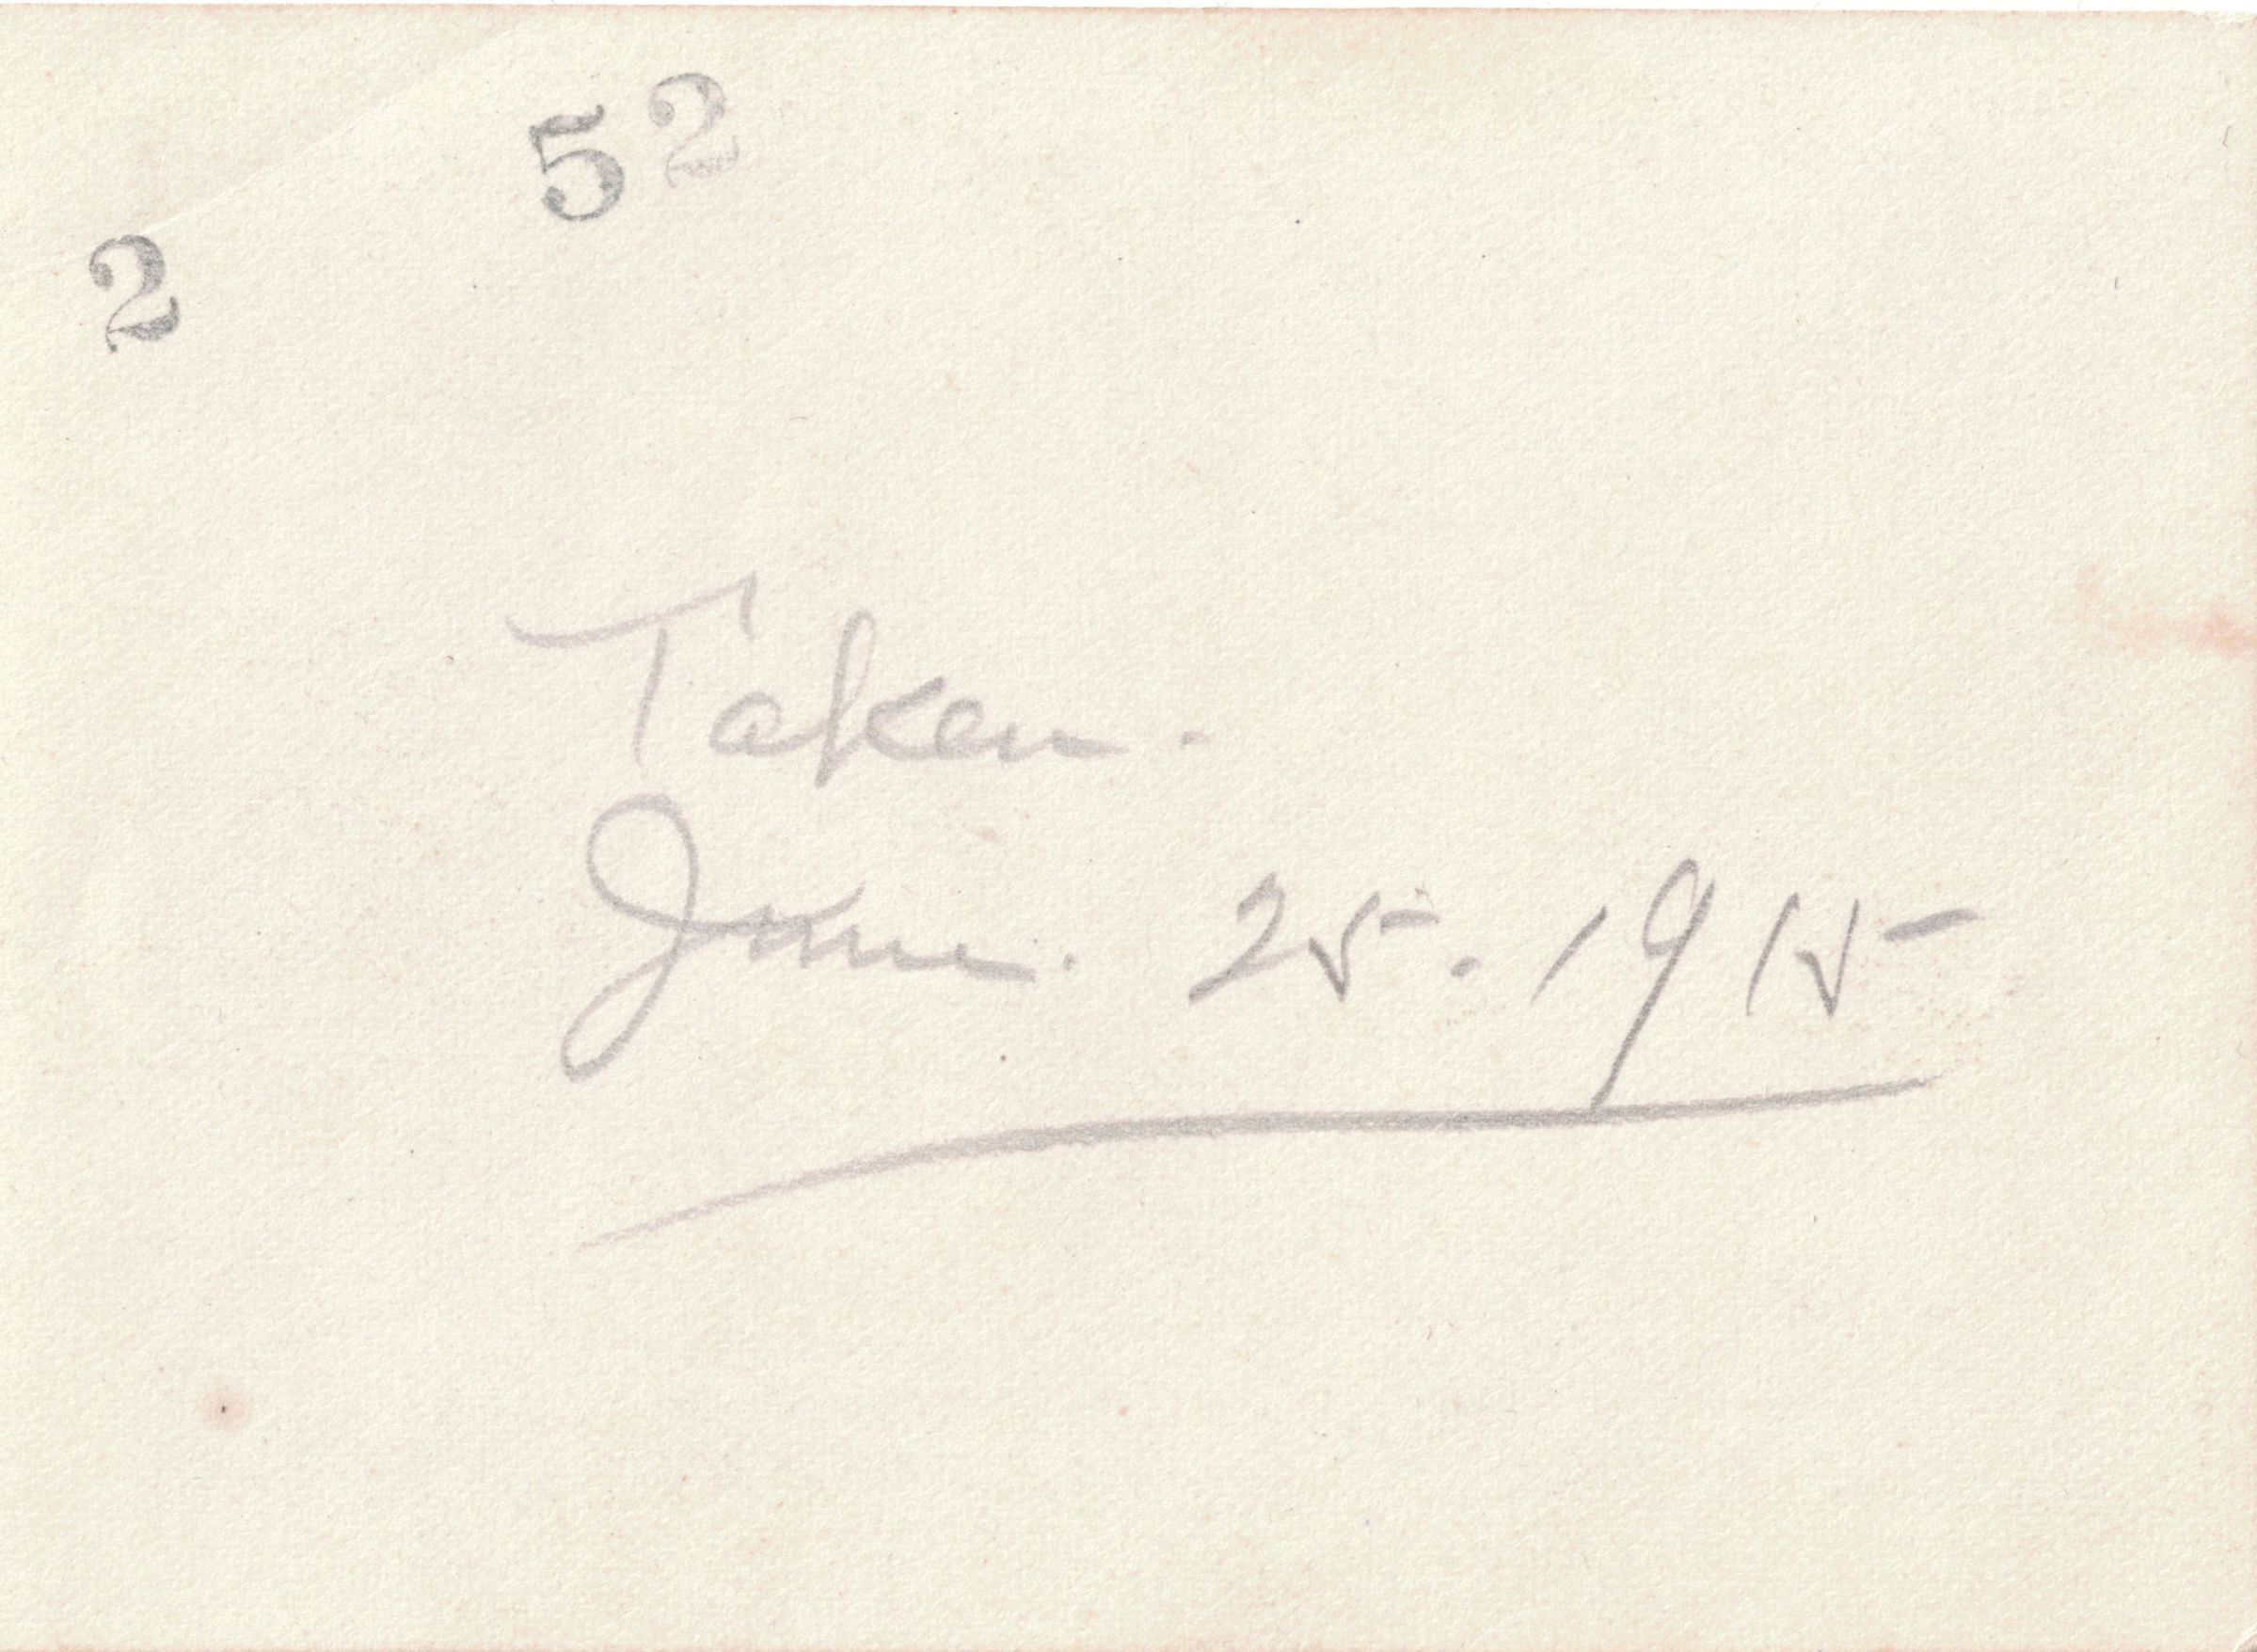 52
2
Taken.
June. 25. 1915